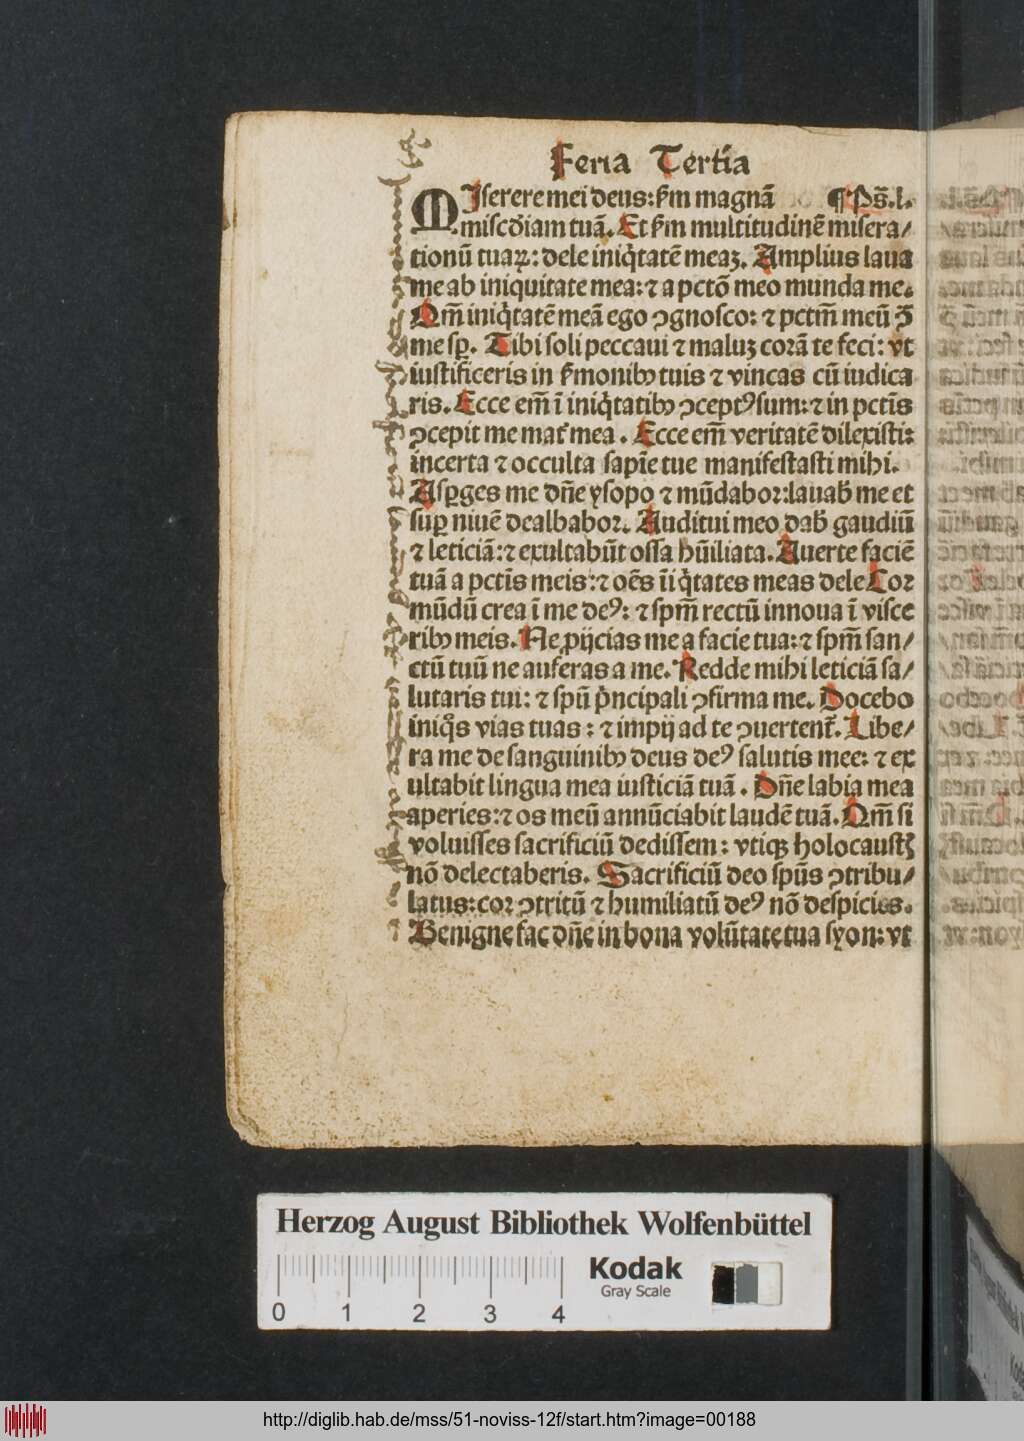 Feria Tertia
MIſerere mei deus: ẜm magnā ¶ Ps̄. l.
miſcd̄iam tuā. Et ẜm multitudinē miſera/
tionū tuaꝝ: dele iniq̇tatē meaꝫ. Amplius laua
me ab iniquitate mea: ⁊ a pctō meo munda me.
Qm̄ iniq̇tatē meā ego ꝯgnoſco: ⁊ pctm̄ meū ꝯ̄
me ſꝑ. Tibi ſoli peccaui ⁊ maluꝫ corā te feci: vt
iuſtificeris in ẜmonibꝰ tuis ⁊ vincas cū iudica
ris. Ecce em̄ ī iniq̇tatibꝰ ꝯceptꝰ ſum: ⁊ in pctīs
ꝯcepit me mat̄ mea. Ecce em̄ veritatē dilexiſti:
incerta ⁊ occulta ſapīe tue manifeſtaſti mihi.
Aſꝑges me dn̄e yſopo ⁊ mūdabor: lauab̄ me et
ſuꝑ niuē dealbabor. Auditui meo dab̄ gaudiū
⁊ leticiā: ⁊ exultabūt oſſa hūiliata. Auerte faciē
tuā a pctīs meis: ⁊ oēs īiq̇tates meas dele Cor
mūdū crea ī me deꝰ: ⁊ ſpm̄ rectū innoua ī viſce
ribꝰ meis. Ne ꝓijcias me a facie tua: ⁊ ſpm̄ ſan/
ctū tuū ne auferas a me. Redde mihi leticiā ſa/
lutaris tui: ⁊ ſpū pͥncipali ꝯfirma me. Docebo
iniq̊s vias tuas: ⁊ impij ad te ꝯuertent̄. Libe/
ra me de ſanguinibꝰ deus deꝰ ſalutis mee: ⁊ ex
ultabit lingua mea iuſticiā tuā. Dn̄e labia mea
aperies: ⁊ os meū annūciabit laudē tuā. Qm̄ ſi
voluiſſes ſacrificiū dediſſem: vtiqꝫ holocauſtꝭ
nō delectaberis. Sacrificiū deo ſpūs ꝯtribu/
latus: cor ꝯtritū ⁊ humiliatū deꝰ nō deſpicies.
Benigne fac dn̄e in bona volūtate tua ſyon: vt
Herzog August Bibliothek Wolfenbüttel
Kodak
Gray Scale
0 1 2 3 4
http://diglib.hab.de/mss/51-noviss-12f/start.htm?image=00188